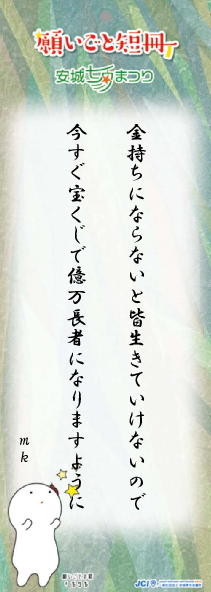 願いごと短冊
安城七夕まつり
金持ちにならないと皆生きていけないので
今すぐ宝くじで億万長者になりますように
mk
JCI